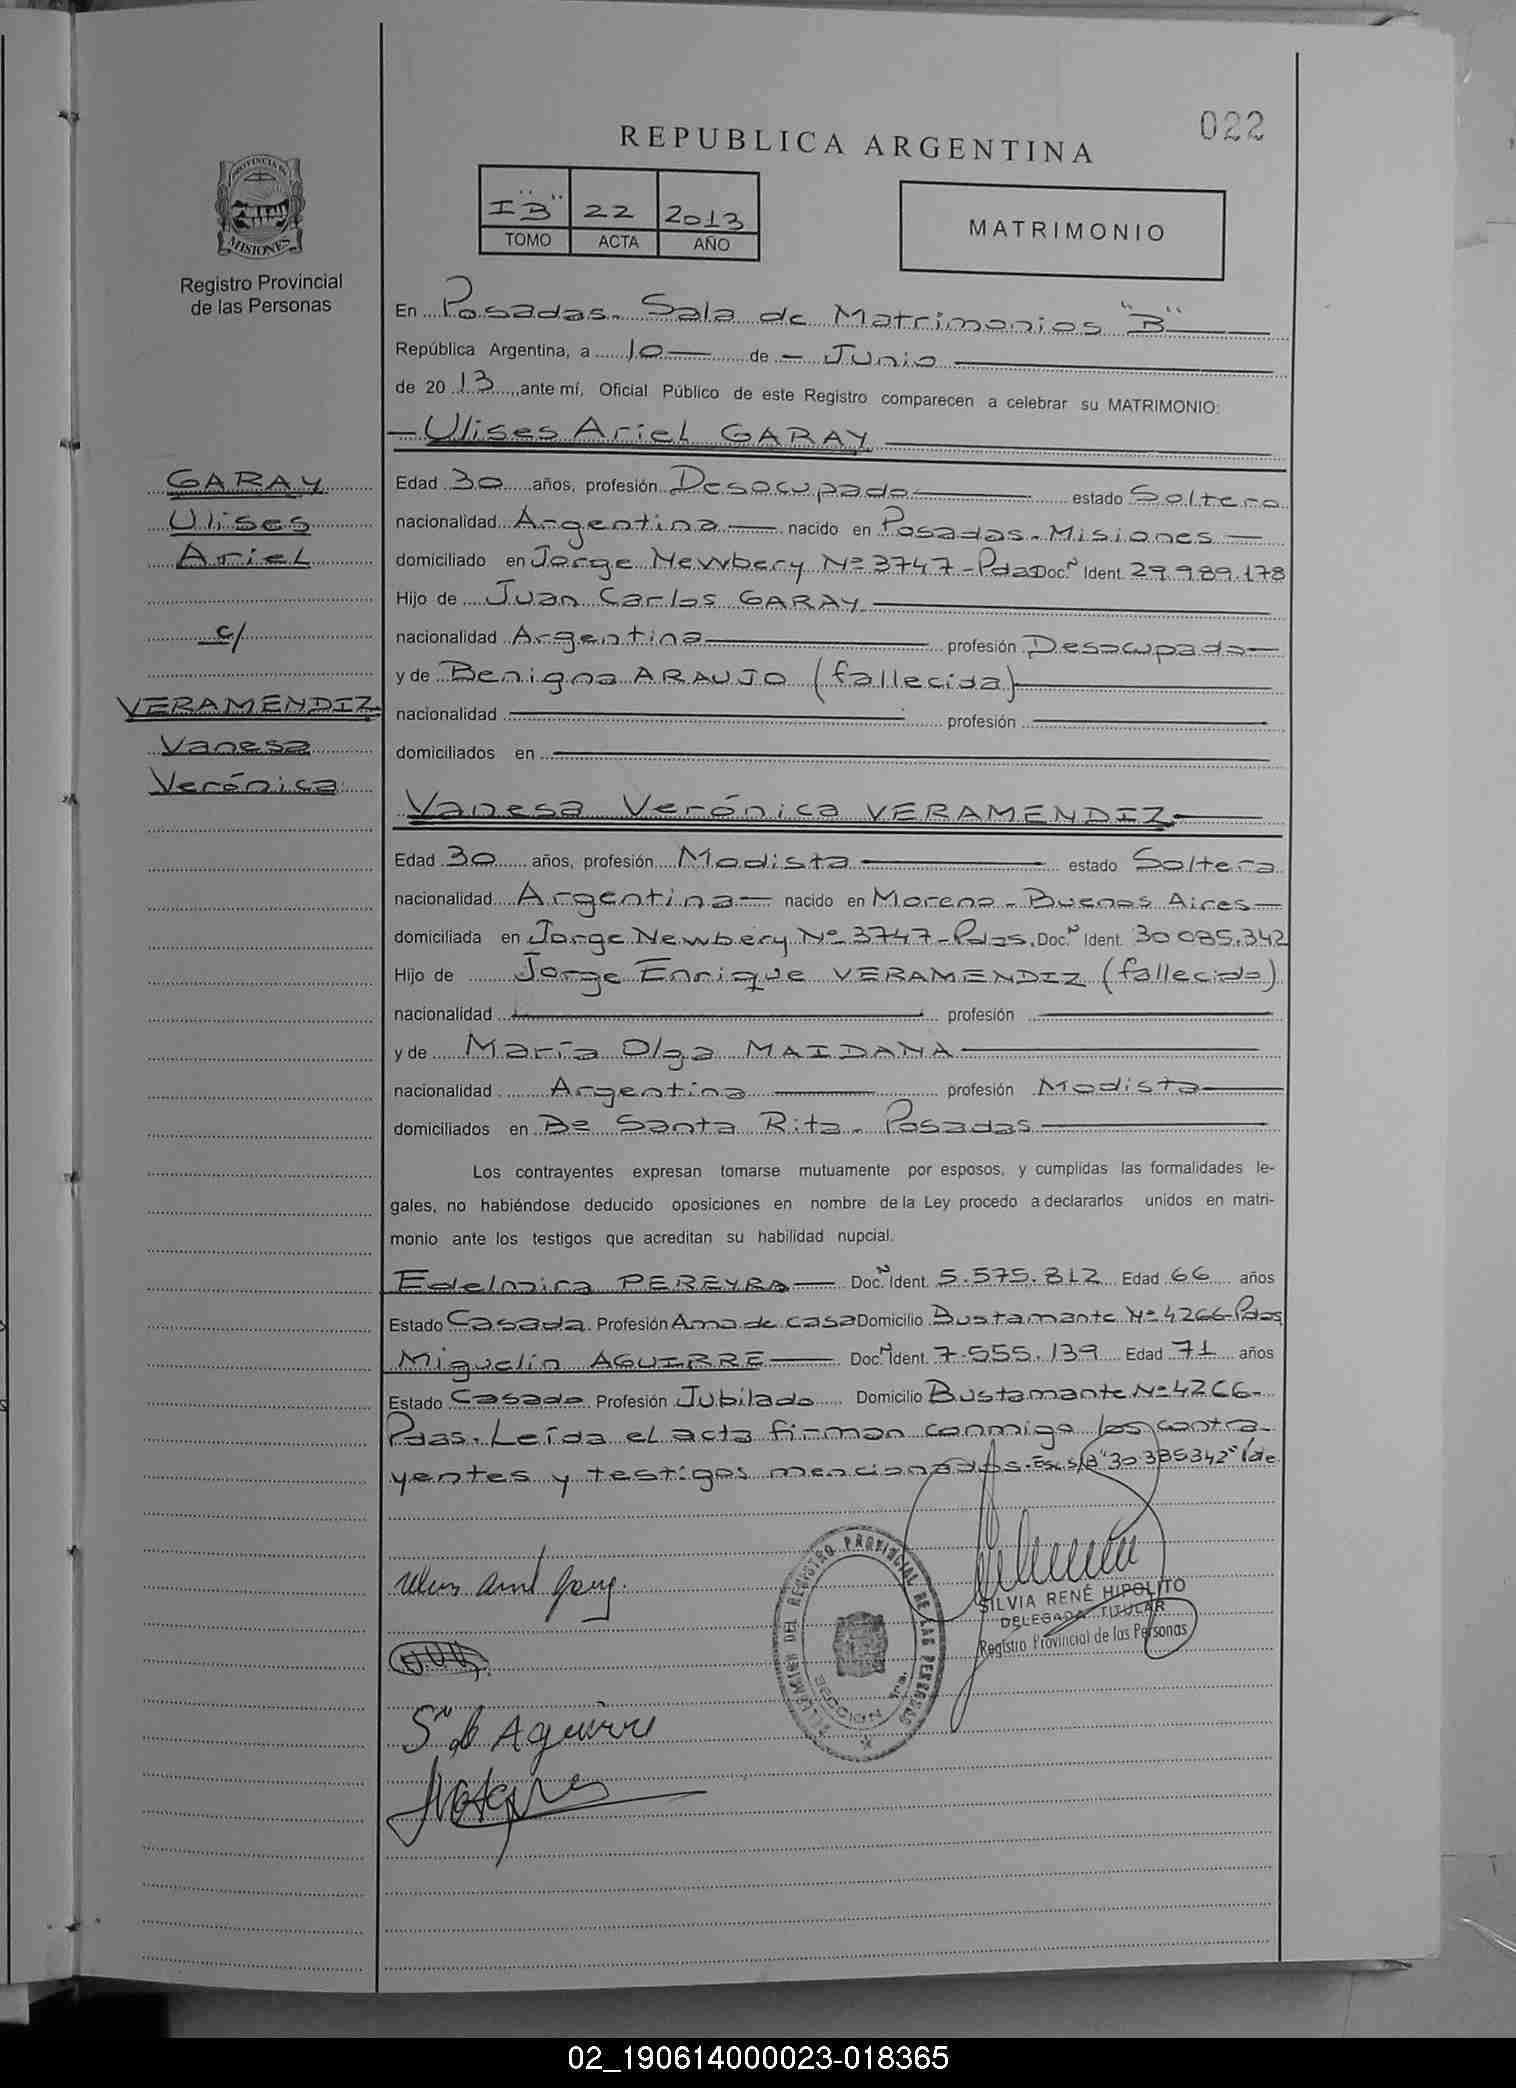 022
REPUBLICA ARGENTINA
PROVINCIA DE
MISIONES
Registro Provincial
de las Personas
I "B" 22 2013
TOMO ACTA AÑO
MATRIMONIO
En Posadas. Sala de Matrimonios "B"
República Argentina, a 10 de Junio
de 20 13, ante mí, Oficial Público de este Registro comparecen a celebrar su MATRIMONIO:
Ulises Ariel GARAY
GARAY
Ulises
Ariel
c/
VERAMENDIZ
Vanesa
Verónica
Edad 30 años, profesión Desocupado estado Soltero
nacionalidad Argentina nacido en Posadas. Misiones
domiciliado en Jorge Newbery Nº 3747-Pdas Doc. N Ident. 29.989.178
Hijo de Juan Carlos GARAY
nacionalidad Argentina profesión Desocupado
y de Benigna ARAUJO (fallecida)
nacionalidad profesión
domiciliados en
Vanesa Verónica VERAMENDIZ
Edad 30 años, profesión Modista estado Soltera
nacionalidad Argentina nacido en Moreno - Buenos Aires
domiciliada en Jorge Newbery Nº 3747-Pdas. Doc. N Ident. 30 085.342
Hijo de Jorge Enrique VERAMENDIZ (fallecido)
nacionalidad profesión
y de María Olga MAIDANA
nacionalidad Argentina profesión Modista
domiciliados en Bº Santa Rita. Posadas
Los contrayentes expresan tomarse mutuamente por esposos, y cumplidas las formalidades le-
gales, no habiéndose deducido oposiciones en nombre de la Ley procedo a declararlos unidos en matri-
monio ante los testigos que acreditan su habilidad nupcial.
Edelmira PEREYRA Doc. N Ident. 5.575.812 Edad 66 años
Estado Casada Profesión Ama de casa Domicilio Bustamante Nº 4266-Pdas
Miguelin AGUIRRE Doc. N Ident. 7.555.139 Edad 71 años
Estado Casado Profesión Jubilado Domicilio Bustamante Nº 4266-
Pdas. Leída el acta firman conmigo los contra-
yentes y testigos mencionados. Esc. S/B "30 385342"
Sra de Aguirre
REGISTRO PROVINCIAL DE LAS PERSONAS
SECCION
SILVIA RENÉ HIPOLITO
DELEGADA TITULAR
Registro Provincial de las Personas
02_190614000023-018365